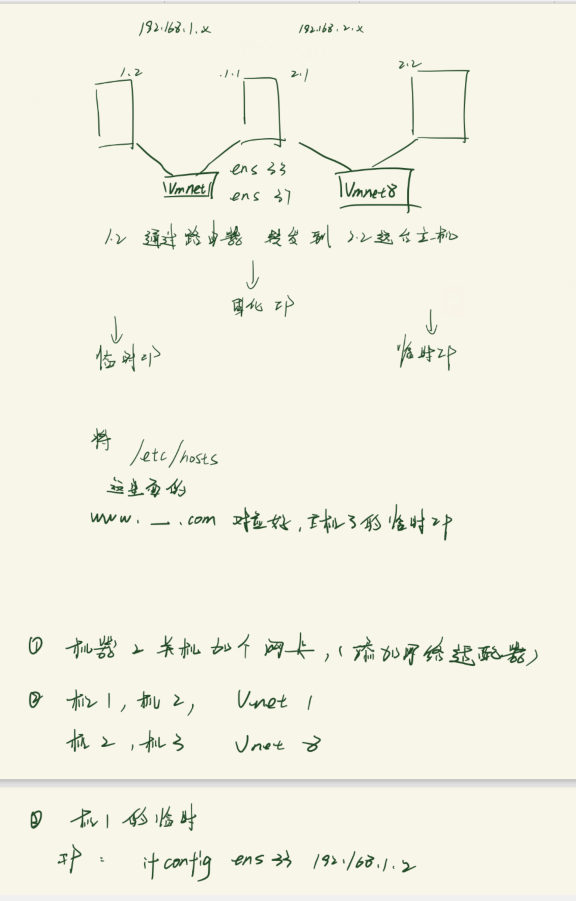 192.168.1.x 192.168.2.x
1.2 .1.1 2.1 2.2
ens 33
Vmnet1 Vmnet8
ens 37
1.2 通过路由器 转发到 2.2这台主机
固化IP
临时IP 临时IP
将 /etc/hosts
这里面的
www. _ .com 对应好,主机3的临时IP
① 机器2关机加个网卡,(添加网络适配器)
② 机1,机2, Vnet 1
机2,机3 Vnet 8
③ 机1的临时
IP: ifconfig ens 33 192.168.1.2